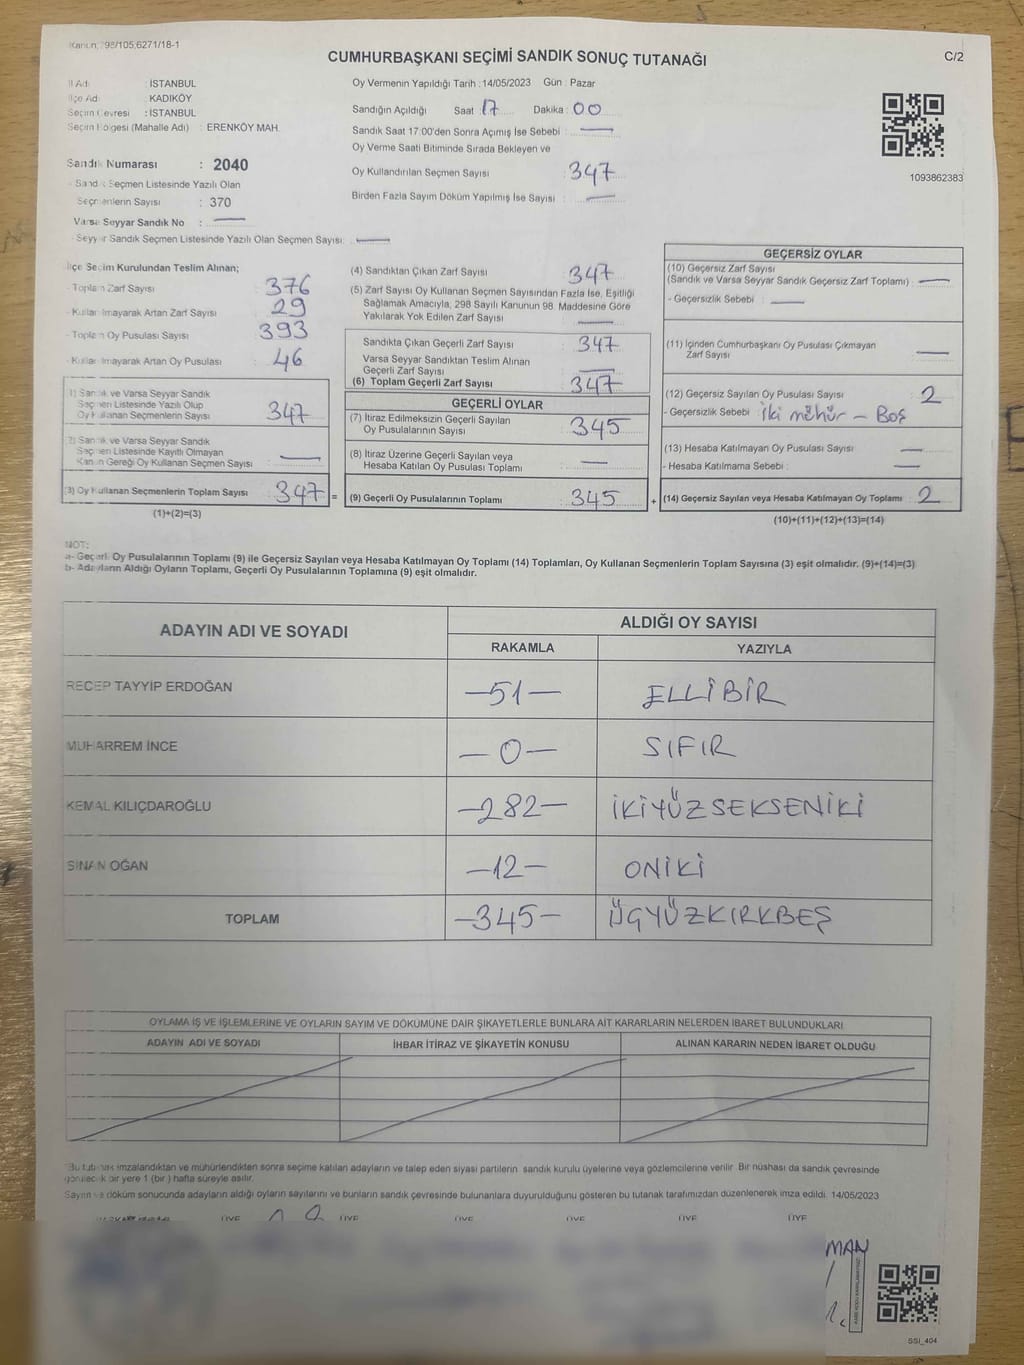 Kanun: 298/105;6271/18-1
CUMHURBAŞKANI SEÇİMİ SANDIK SONUÇ TUTANAĞI
C/2
İl Adı : İSTANBUL
İlçe Adı : KADIKÖY
Seçim Çevresi : İSTANBUL
Seçim Bölgesi (Mahalle Adı) : ERENKÖY MAH.
Sandık Numarası : 2040
Sandık Seçmen Listesinde Yazılı Olan
Seçmenlerin Sayısı : 370
Varsa Seyyar Sandık No : —
Seyyar Sandık Seçmen Listesinde Yazılı Olan Seçmen Sayısı: —
Oy Vermenin Yapıldığı Tarih : 14/05/2023 Gün : Pazar
Sandığın Açıldığı Saat : 17 Dakika : 00
Sandık Saat 17:00'den Sonra Açımış İse Sebebi : —
Oy Verme Saati Bitiminde Sırada Bekleyen ve
Oy Kullandırılan Seçmen Sayısı : 347
Birden Fazla Sayım Döküm Yapılmış İse Sayısı : —
1093862383
İlçe Seçim Kurulundan Teslim Alınan;
- Toplam Zarf Sayısı : 376
- Kullanılmayarak Artan Zarf Sayısı : 29
- Toplam Oy Pusulası Sayısı : 393
- Kullanılmayarak Artan Oy Pusulası : 46
(1) Sandık ve Varsa Seyyar Sandık
Seçmen Listesinde Yazılı Olup
Oy Kullanan Seçmenlerin Sayısı : 347
(2) Sandık ve Varsa Seyyar Sandık
Seçmen Listesinde Kayıtlı Olmayan
Kanun Gereği Oy Kullanan Seçmen Sayısı : —
(3) Oy Kullanan Seçmenlerin Toplam Sayısı : 347 =
(1)+(2)=(3)
(4) Sandıktan Çıkan Zarf Sayısı : 347
(5) Zarf Sayısı Oy Kullanan Seçmen Sayısından Fazla İse, Eşitliği
Sağlamak Amacıyla, 298 Sayılı Kanunun 98. Maddesine Göre
Yakılarak Yok Edilen Zarf Sayısı : —
Sandıkta Çıkan Geçerli Zarf Sayısı : 347
Varsa Seyyar Sandıktan Teslim Alınan
Geçerli Zarf Sayısı : —
(6) Toplam Geçerli Zarf Sayısı : 347
GEÇERLİ OYLAR
(7) İtiraz Edilmeksizin Geçerli Sayılan
Oy Pusulalarının Sayısı : 345
(8) İtiraz Üzerine Geçerli Sayılan veya
Hesaba Katılan Oy Pusulası Toplamı : —
(9) Geçerli Oy Pusulalarının Toplamı : 345 +
GEÇERSİZ OYLAR
(10) Geçersiz Zarf Sayısı
(Sandık ve Varsa Seyyar Sandık Geçersiz Zarf Toplamı) : —
- Geçersizlik Sebebi : —
(11) İçinden Cumhurbaşkanı Oy Pusulası Çıkmayan
Zarf Sayısı : —
(12) Geçersiz Sayılan Oy Pusulası Sayısı : 2
- Geçersizlik Sebebi : İki mühür - Boş
(13) Hesaba Katılmayan Oy Pusulası Sayısı : —
- Hesaba Katılmama Sebebi : —
(14) Geçersiz Sayılan veya Hesaba Katılmayan Oy Toplamı : 2
(10)+(11)+(12)+(13)=(14)
NOT:
a- Geçerli Oy Pusulalarının Toplamı (9) ile Geçersiz Sayılan veya Hesaba Katılmayan Oy Toplamı (14) Toplamları, Oy Kullanan Seçmenlerin Toplam Sayısına (3) eşit olmalıdır. (9)+(14)=(3)
b- Adayların Aldığı Oyların Toplamı, Geçerli Oy Pusulalarının Toplamına (9) eşit olmalıdır.
ADAYIN ADI VE SOYADI
ALDIĞI OY SAYISI
RAKAMLA YAZIYLA
RECEP TAYYİP ERDOĞAN -51- ELLİBİR
MUHARREM İNCE -0- SIFIR
KEMAL KILIÇDAROĞLU -282- İKİYÜZSEKSENİKİ
SİNAN OĞAN -12- ONİKİ
TOPLAM -345- ÜÇYÜZKIRKBEŞ
OYLAMA İŞ VE İŞLEMLERİNE VE OYLARIN SAYIM VE DÖKÜMÜNE DAİR ŞİKAYETLERLE BUNLARA AİT KARARLARIN NELERDEN İBARET BULUNDUKLARI
ADAYIN ADI VE SOYADI İHBAR İTİRAZ VE ŞİKAYETİN KONUSU ALINAN KARARIN NEDEN İBARET OLDUĞU
Bu tutanak imzalandıktan ve mühürlendikten sonra seçime katılan adayların ve talep eden siyasi partilerin sandık kurulu üyelerine veya gözlemcilerine verilir. Bir nüshası da sandık çevresinde
görülecek bir yere 1 (bir) hafta süreyle asılır.
Sayım ve döküm sonucunda adayların aldığı oyların sayılarını ve bunların sandık çevresinde bulunanlara duyurulduğunu gösteren bu tutanak tarafımızdan düzenlenerek imza edildi. 14/05/2023
ÜYE ÜYE ÜYE ÜYE ÜYE ÜYE
MAN
SSI_404